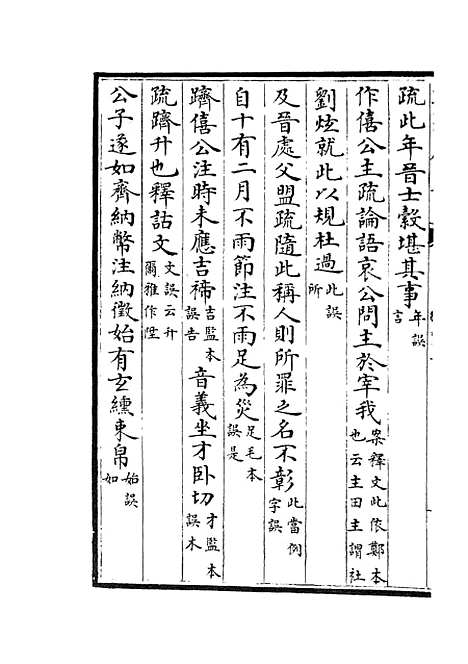 疏此年晉士縠堪其事年誤言
作僖公主疏論語哀公問主於宰我案釋文此依鄭本也云主田主謂社
劉炫就此以規杜過此誤所
及晉處父盟疏隨此稱人則所罪之名不彰此當例字誤
自十有二月不雨節注不雨足為災足毛本誤是
躋僖公注時未應吉禘吉監本誤告音義坐才卧切才監本誤木
疏躋升也釋詁文文誤云升爾雅作陞
公子遂如齊納幣注納徵始有玄纁束帛始誤如